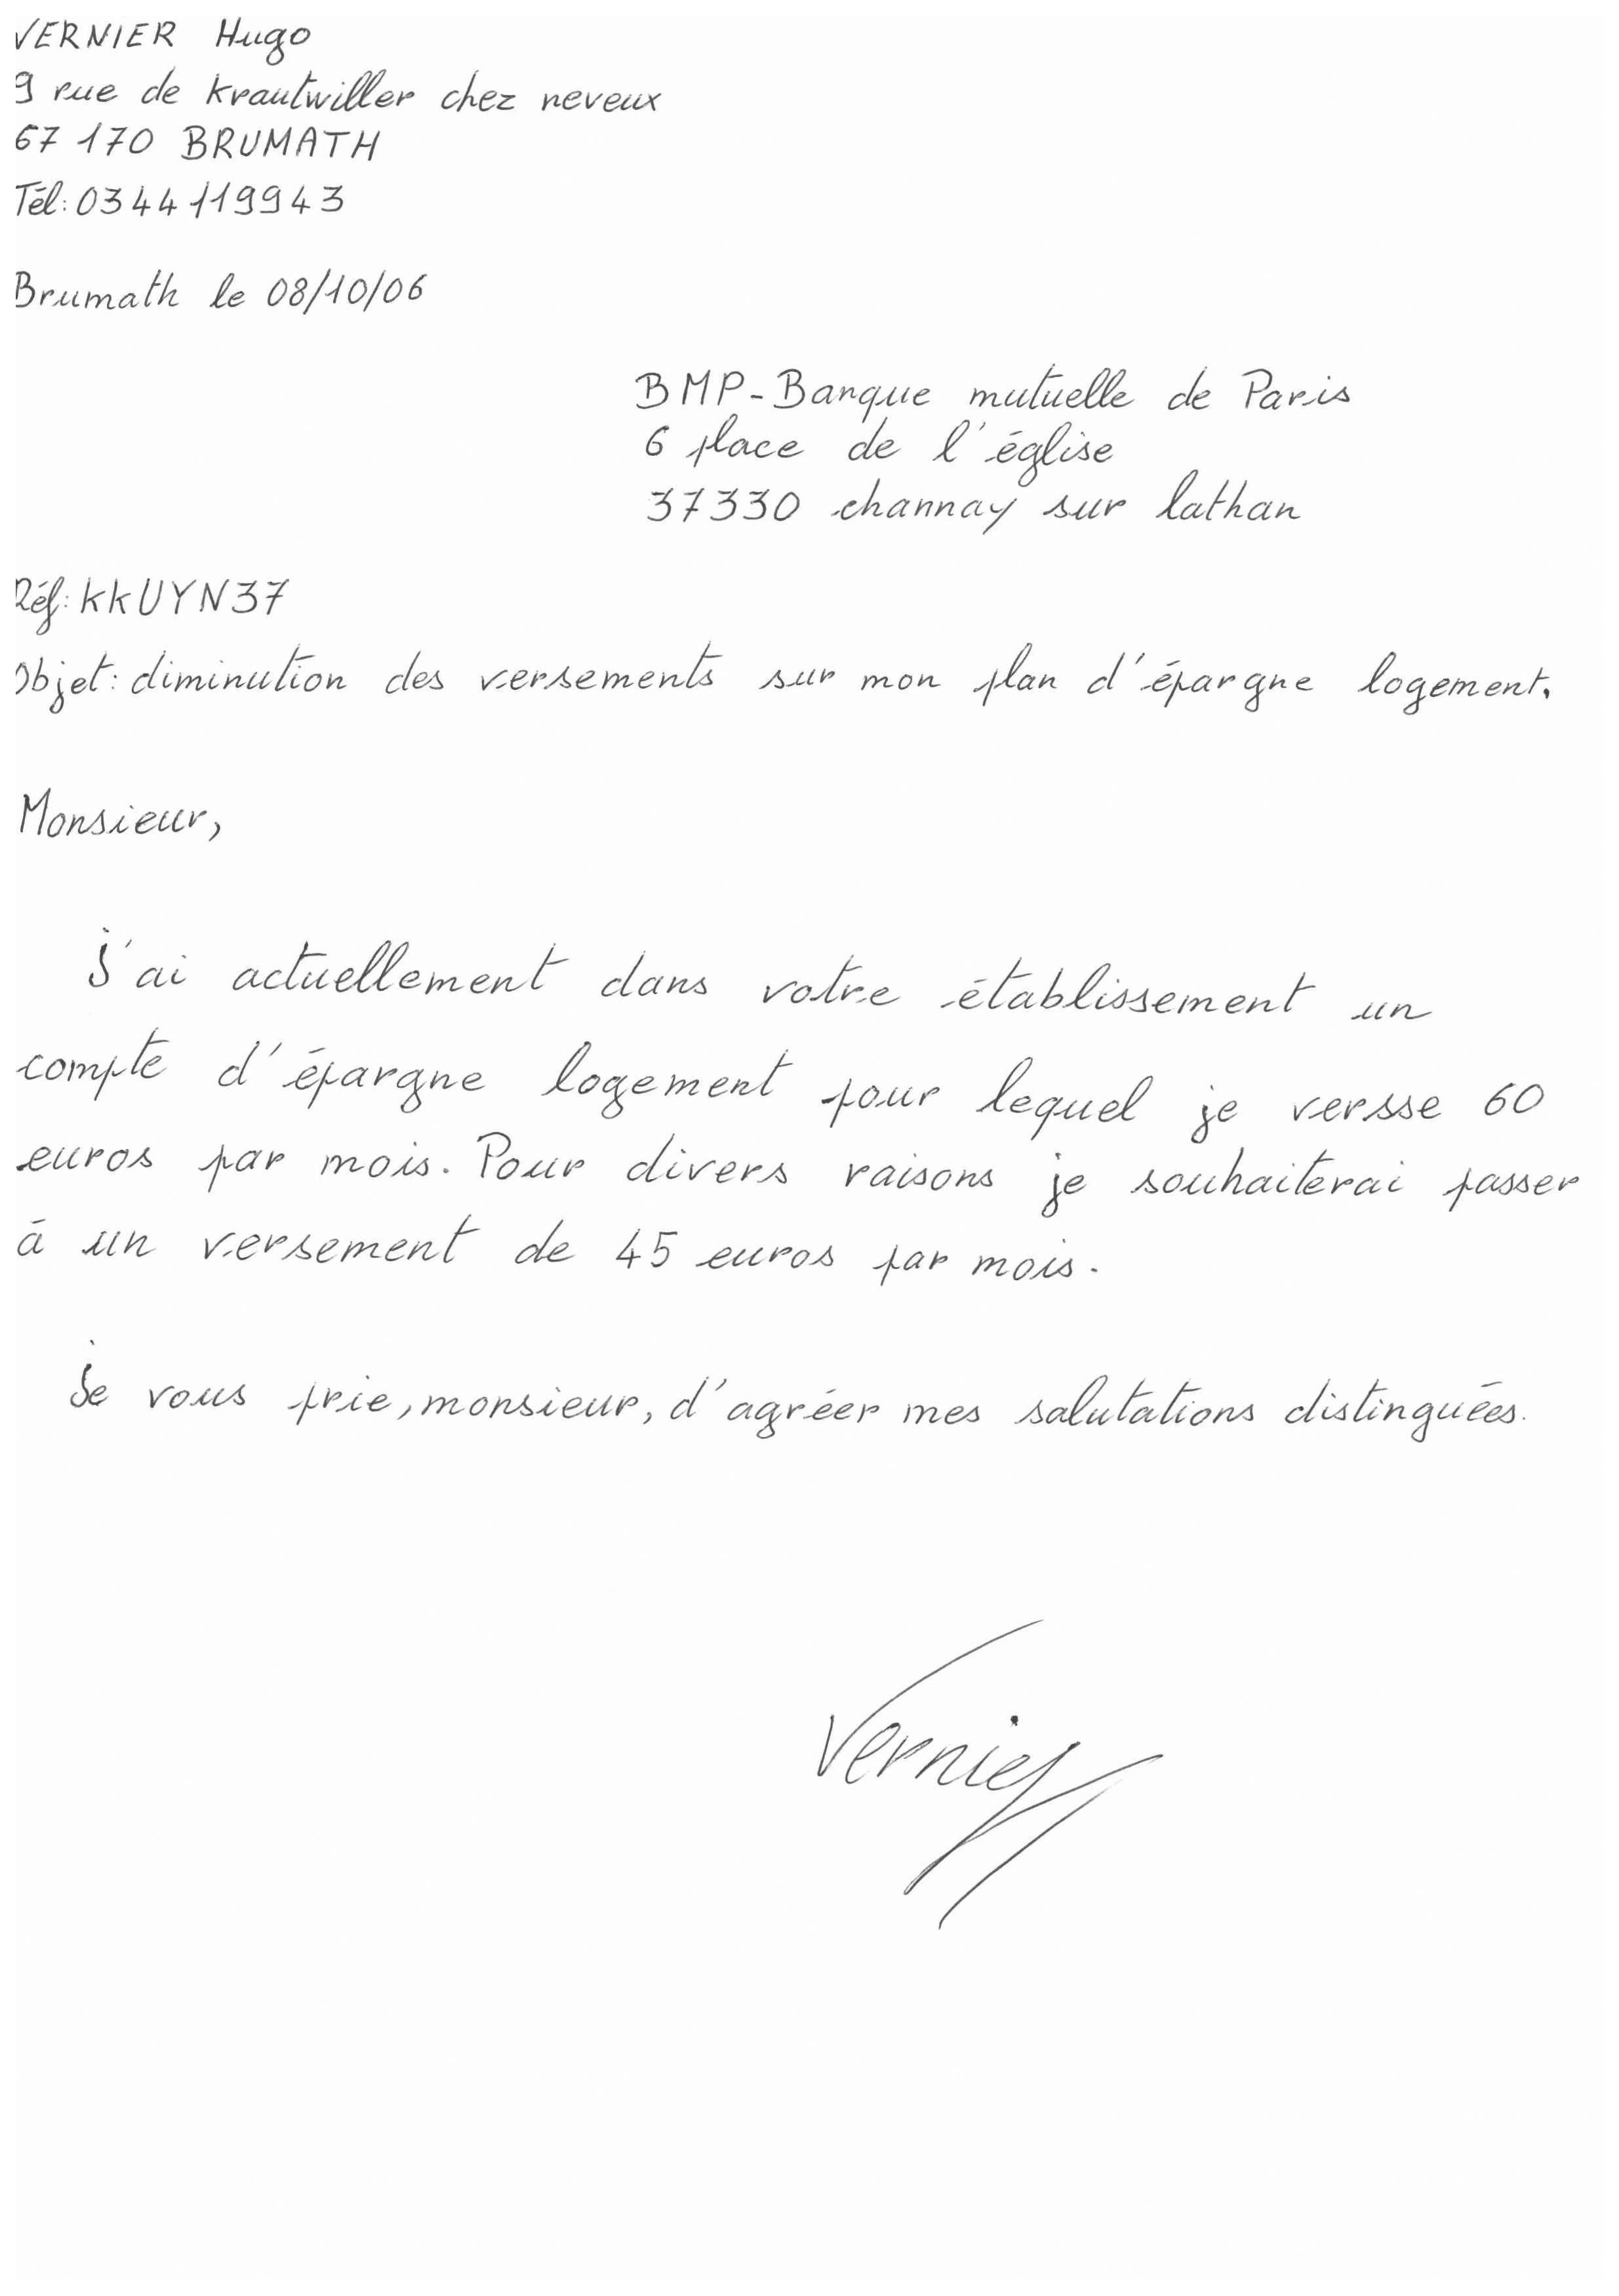 VERNIER Hugo
9 rue de krautwiller chez neveux
67 170 BRUMATH
Tél: 0344119943
Brumath le 08/10/06
BMP-Banque mutuelle de Paris
6 place de l'église
37330 channay sur lathan
Réf: KKUYN37
Objet: diminution des versements sur mon plan d'épargne logement.
Monsieur,
J'ai actuellement dans votre établissement un
compte d'épargne logement pour lequel je versse 60
euros par mois. Pour divers raisons je souhaiterai passer
à un versement de 45 euros par mois.
Je vous prie, monsieur, d'agréer mes salutations distinguées.
Vernier